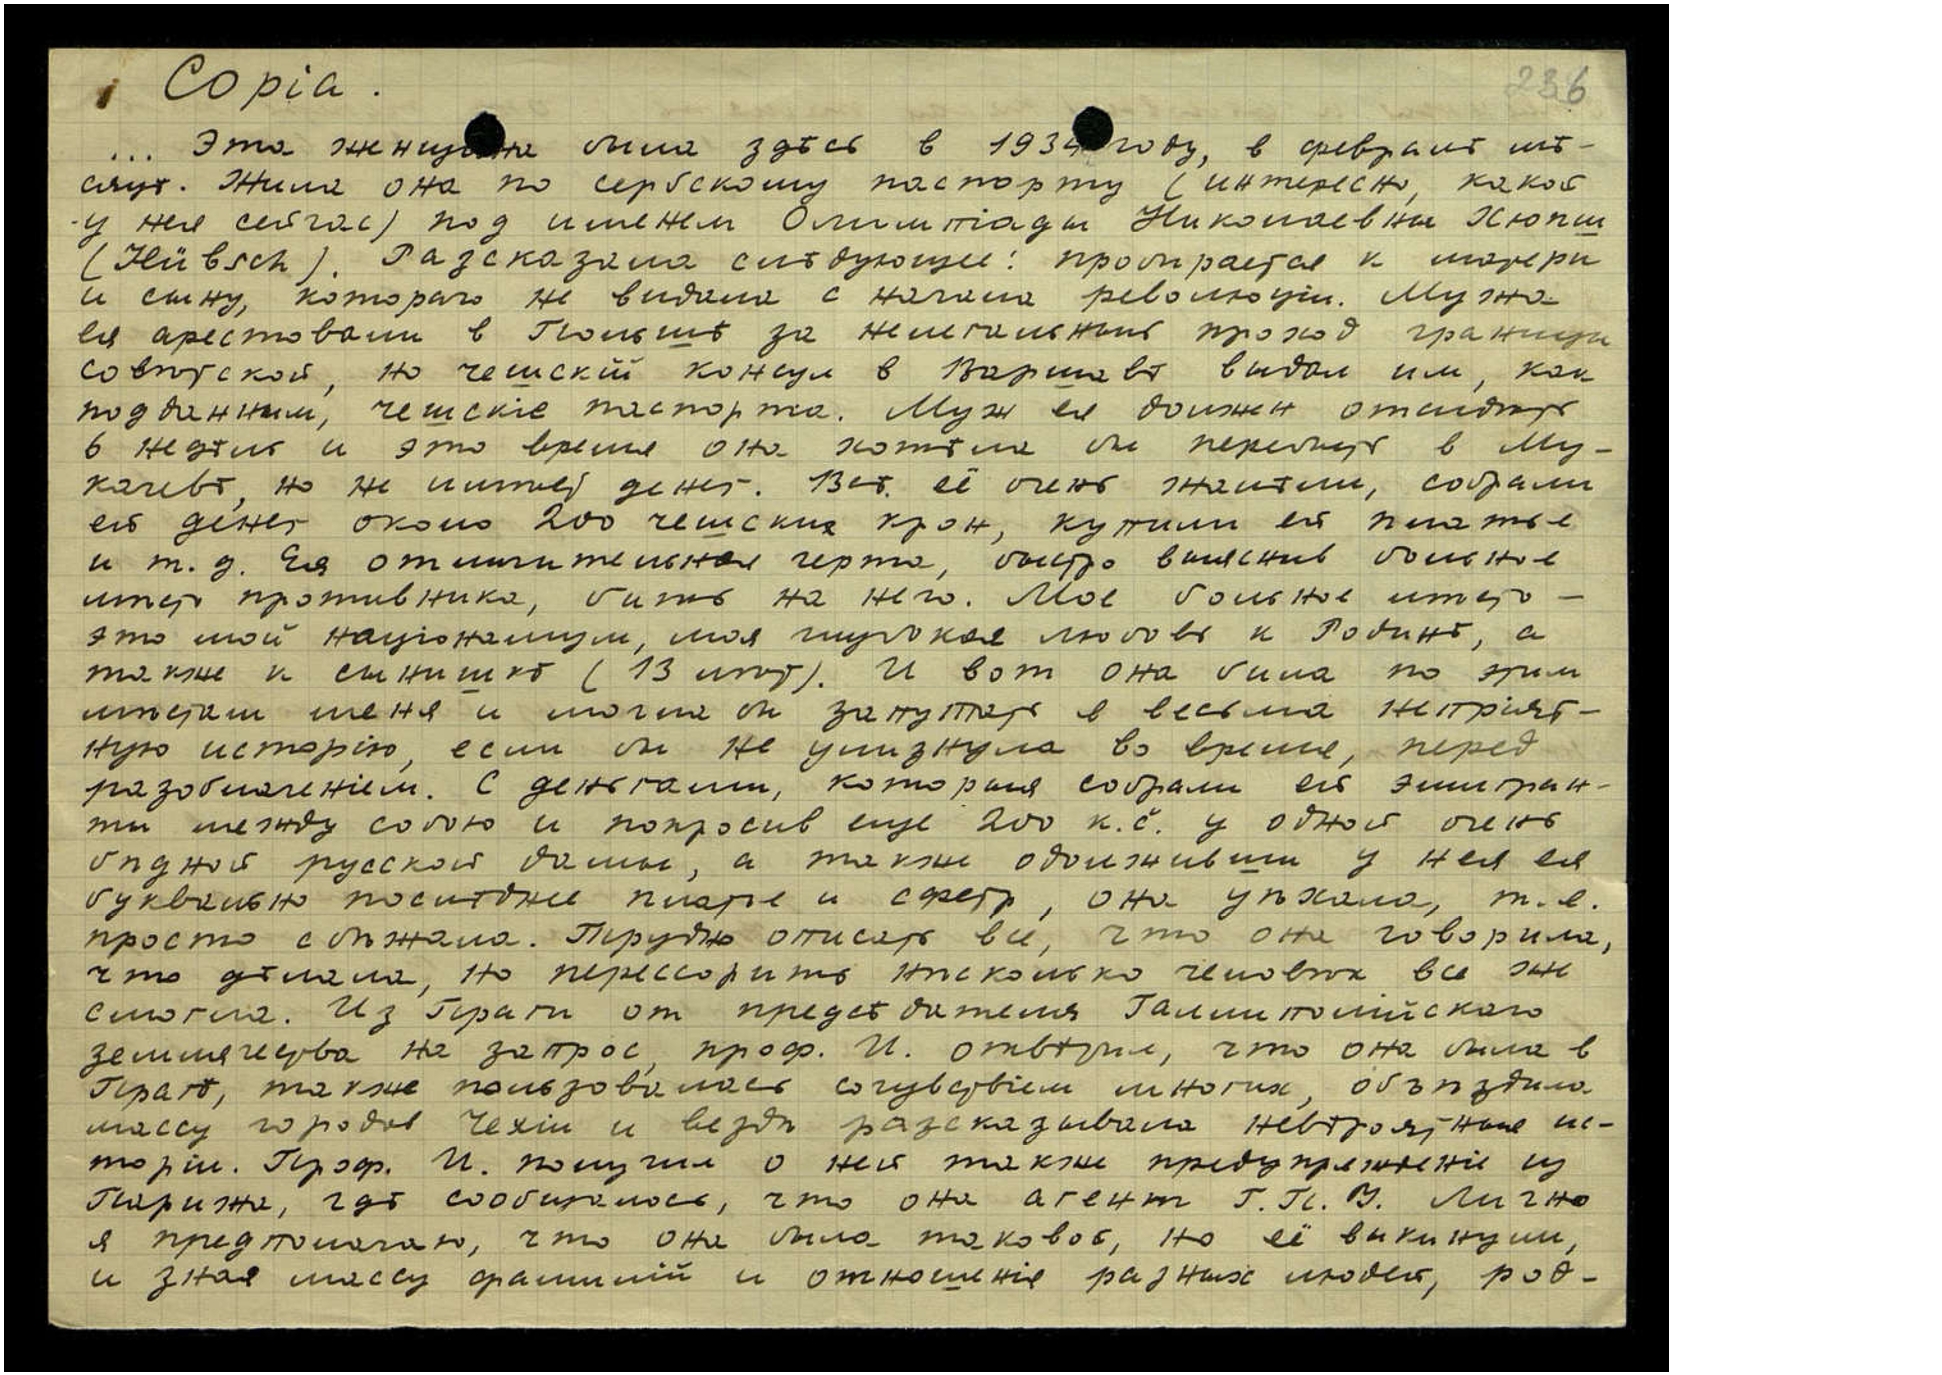 Copia.
236
... Эта женщина была здѣсь в 1934 году, в февралѣ мѣ-
сяцѣ. Жила она по сербскому паспорту (интересно, какой
у нея сейчас) под именем Олимпіады Николаевны Хюпш
(Hübsch). Разсказала слѣдующее: пробирается к матери
и сыну, котораго не видала с начала революціи. Мужа
ея арестовали в Польшѣ за нелегальный проход границы
совѣтской, но чешскій консул в Варшавѣ выдал им, как
подданным, чешскіе паспорта. Муж ея должен отсидѣть
6 недѣль и это время она хотѣла бы перебыть в Му-
качевѣ, но не имѣет денег. Всѣ её очень жалѣли, собрали
ей денег около 200 чешских крон, купили ей платье
и т. д. Ея отличительная черта, быстро выяснив больное
мѣсто противника, бить на него. Мое больное мѣсто –
это мой націонализм, моя глубокая любовь к Родинѣ, а
также к сынишкѣ (13 лѣт). И вот она била по этим
мѣстам меня и могла бы запутать в весьма непріят-
ную исторію, если бы не улизнула во время, перед
разоблаченіем. С деньгами, которыя собрали ей эмигран-
ты между собою и попросив еще 200 к.č. у одной очень
бѣдной русской дамы, а также одолживши у нея ея
буквально послѣднее платье и сфетр, она уѣхала, т.е.
просто сбѣжала. Трудно описать все, что она говорила,
что дѣлала, но перессорить нѣсколько человѣк все же
смогла. Из Праги от предсѣдателя Галлиполійскаго
землячества на запрос, проф. И. отвѣтил, что она была в
Прагѣ, также пользовалась сочувствіем многих, объѣздила
массу городов Чехіи и вездѣ разсказывала невѣроятныя ис-
торіи. Проф. И. получил о ней также предупрежденіе из
Парижа, гдѣ сообщалось, что она агент Г.П.У. Лично
я предполагаю, что она была таковой, но её выкинули,
и зная массу фамилій и отношенія разных людей, род-